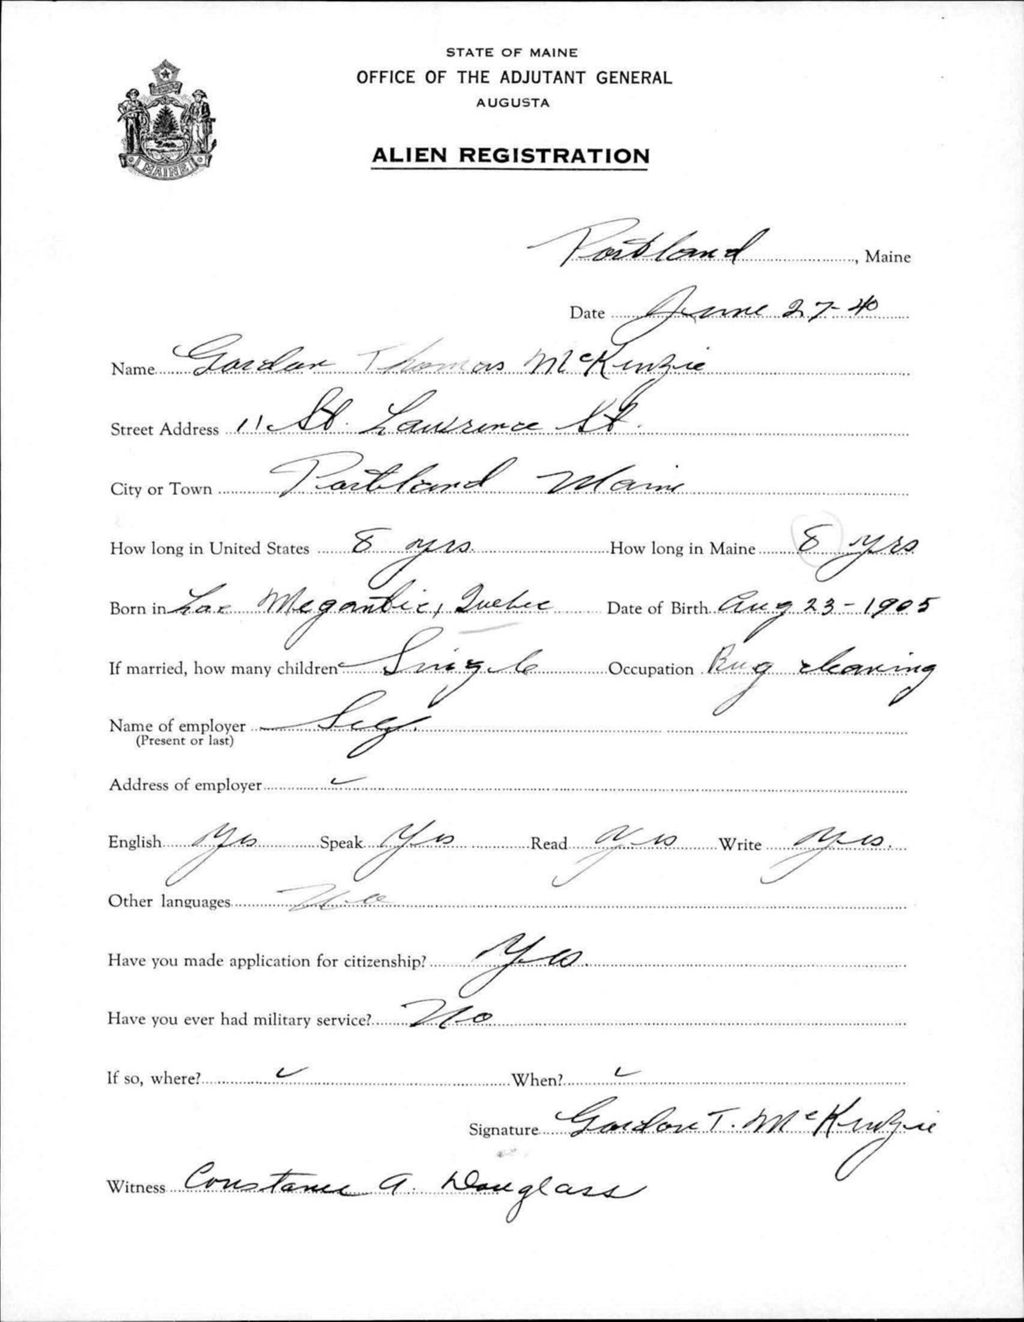 STATE OF MAINE
OFFICE OF THE ADJUTANT GENERAL
AUGUSTA
ALIEN REGISTRATION
MAINE
Portland, Maine
Date June 27-40
Name Gordon Thomas McKenzie
Street Address 11 St. Lawrence St.
City or Town Portland Maine
How long in United States 8 yrs. How long in Maine 8 yrs
Born in Lac Megantic, Quebec Date of Birth Aug 23-1905
If married, how many children Single Occupation Rug cleaning
Name of employer Self.
(Present or last)
Address of employer
English Yes Speak Yes Read Yes Write Yes.
Other languages No
Have you made application for citizenship? Yes
Have you ever had military service? No
If so, where? When?
Signature Gordon T. McKenzie
Witness Constance A. Douglass